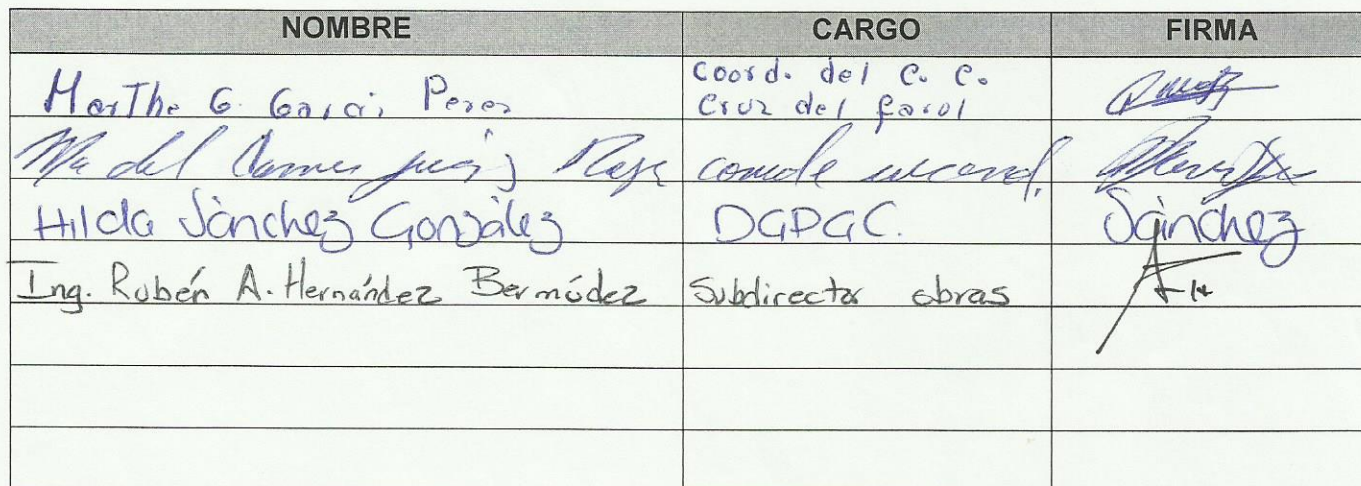 NOMBRE CARGO FIRMA
Coord. del C. C.
Martha G. Garcia Perez Cruz del farol
Ma del Carmen
Hilda Sànchez Gonzàlez DGPGC. Sànchez
Ing. Rubén A. Hernández Bermúdez Subdirector obras